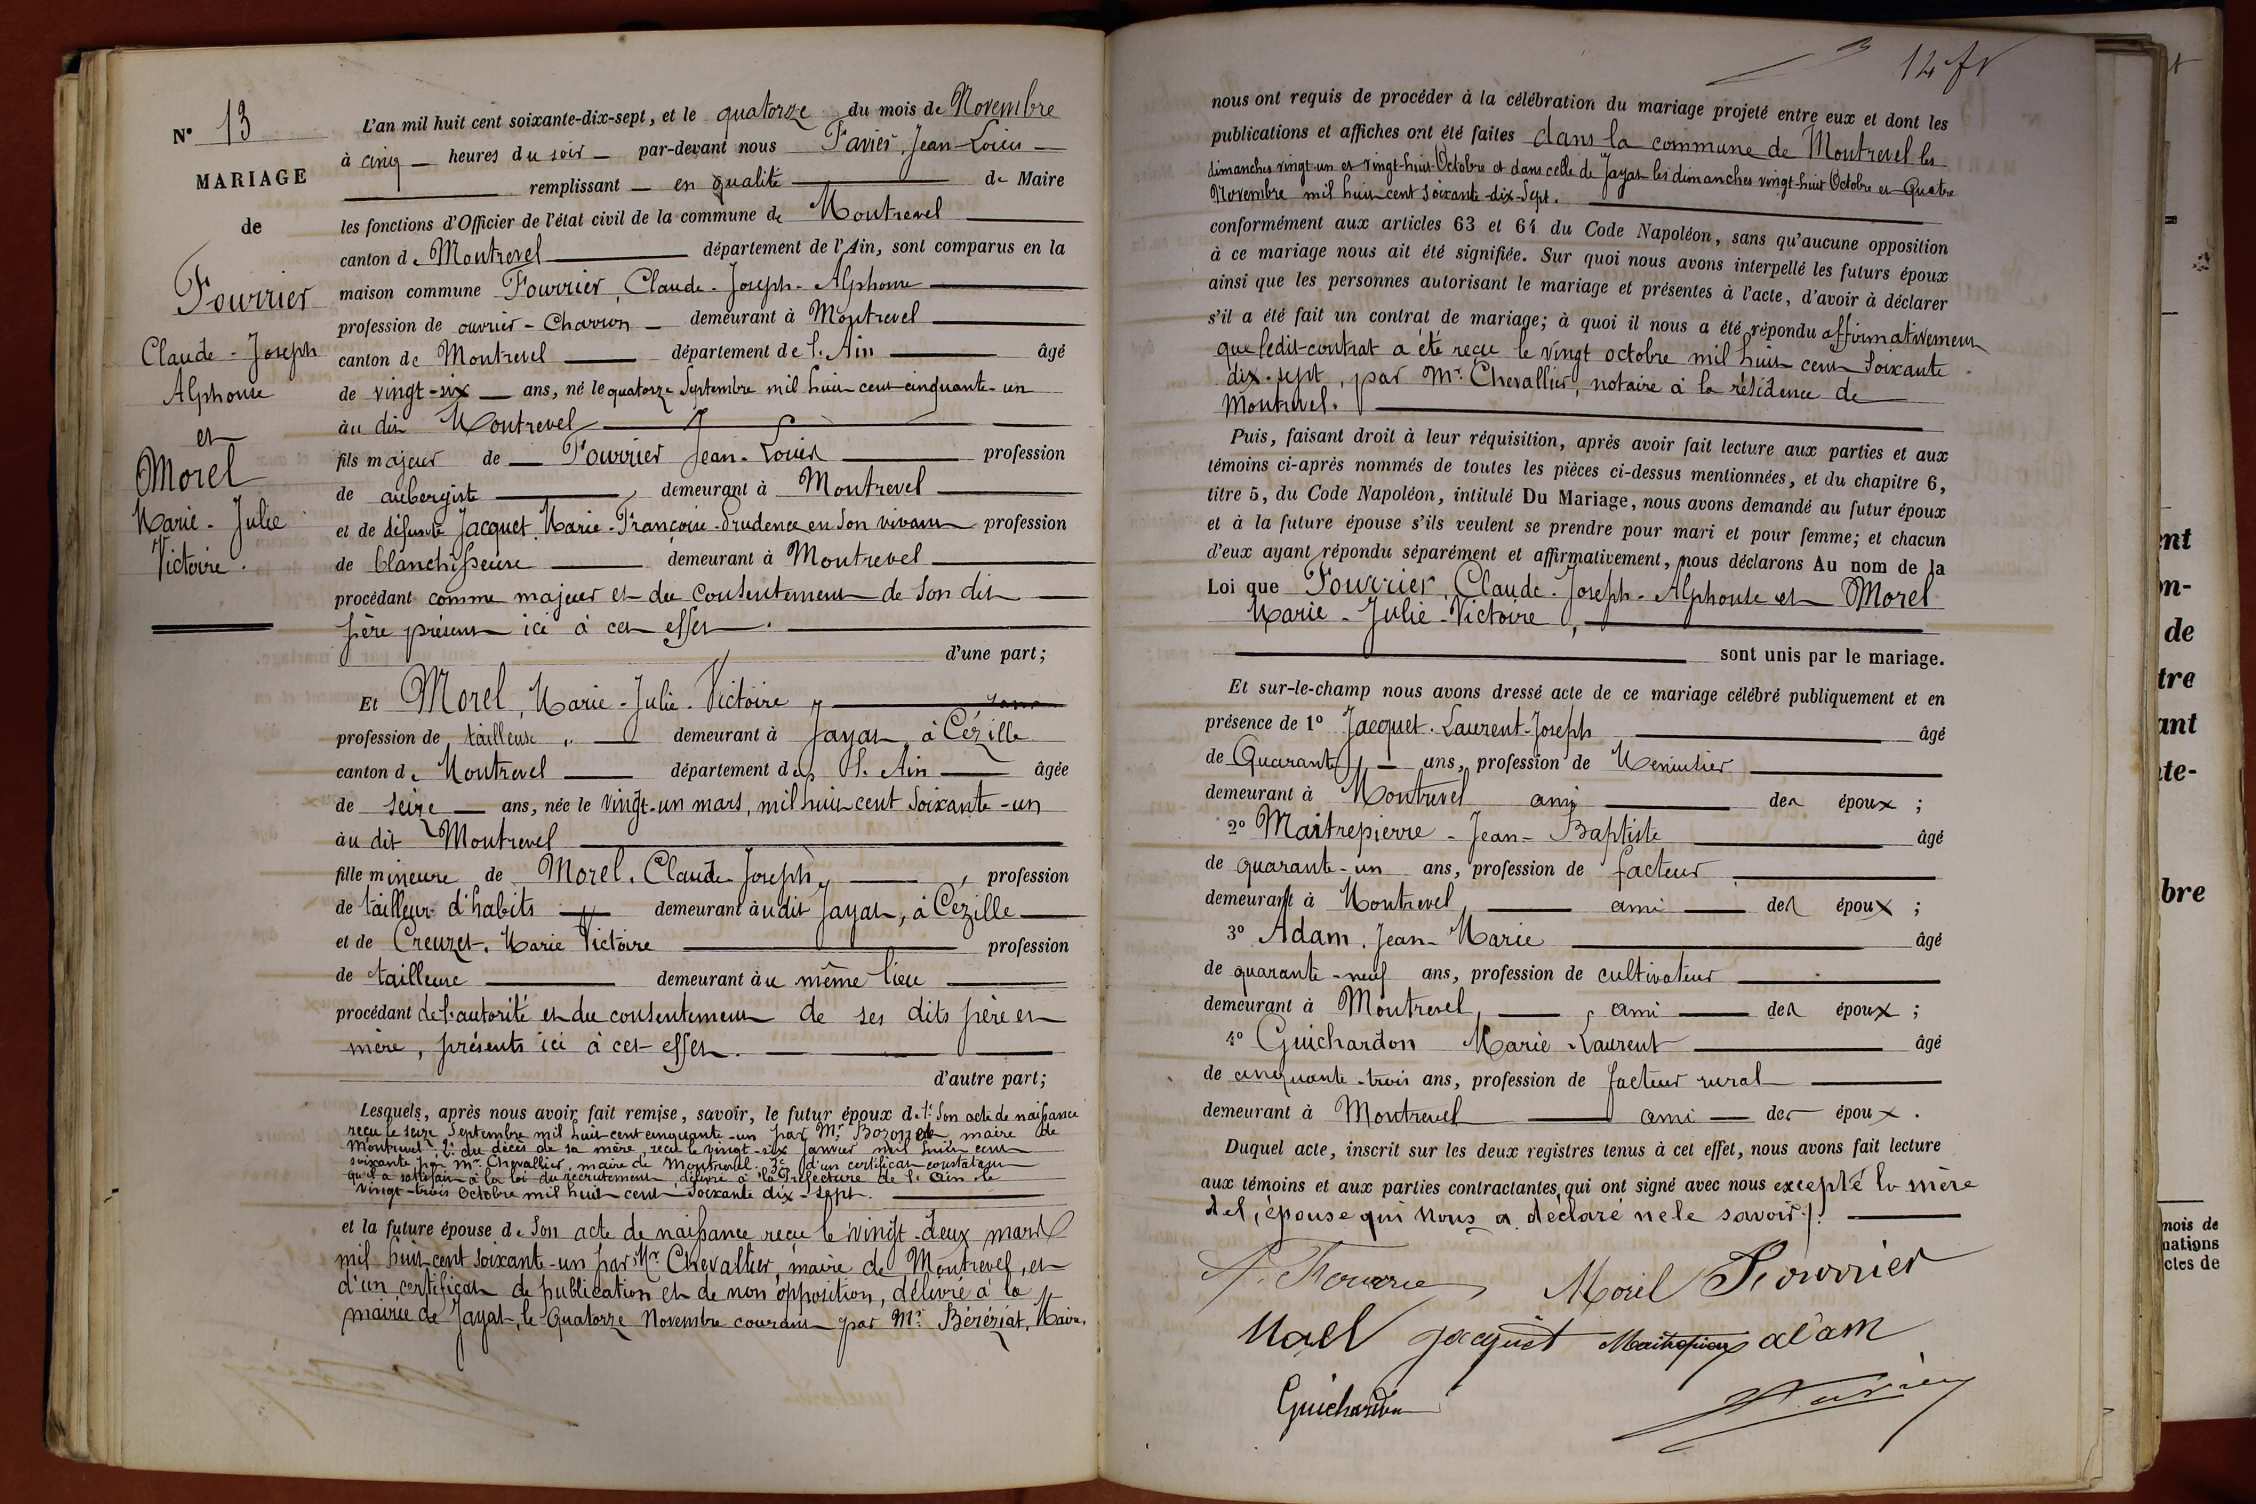 N° 13
MARIAGE
de
Fourrier
Claude - Joseph
Alphonse
et
Morel
Marie - Julie
Victoire.
L'an mil huit cent soixante-dix-sept, et le quatorze du mois de Novembre
à cinq heures du soir par-devant nous Favier, Jean-Louis
remplissant en qualité de Maire
les fonctions d'Officier de l'état civil de la commune de Montrevel
canton de Montrevel département de l'Ain, sont comparus en la
maison commune Fourrier, Claude-Joseph-Alphonse
profession de ouvrier-Charron demeurant à Montrevel
canton de Montrevel département de l'Ain âgé
de vingt-six ans, né le quatorze Septembre mil huit cent cinquante-un
au dit Montrevel
fils majeur de Fourrier Jean-Louis profession
de aubergiste demeurant à Montrevel
et de défunte Jacquet Marie-Françoise-Prudence en son vivant profession
de blanchisseuse demeurant à Montrevel
procédant comme majeur et du consentement de son dit
père présent ici à cet effet.
d'une part;
Et Morel, Marie-Julie-Victoire
profession de tailleuse demeurant à Jayat, à Cézille
canton de Montrevel département de l'Ain âgée
de seize ans, née le vingt-un mars, mil huit cent soixante-un
au dit Montrevel
fille mineure de Morel, Claude-Joseph, profession
de tailleur d'habits demeurant audit Jayat, à Cézille
et de Creuzet, Marie Victoire profession
de tailleuse demeurant au même lieu
procédant de l'autorité et du consentement de ses dits père et
mère, présents ici à cet effet.
d'autre part;
Lesquels, après nous avoir fait remise, savoir, le futur époux de 1° son acte de naissance
reçu le seize Septembre mil huit cent cinquante-un par Mr Bozonet maire de
Montrevel, 2° du décès de sa mère, reçu le vingt-six Janvier mil huit cent
soixante par Mr Chevallier, maire de Montrevel 3° d'un certificat constatant
qu'il a satisfait à la loi du recrutement, délivré à la Préfecture de l'Ain le
vingt-trois Octobre mil huit cent soixante dix-sept.
et la future épouse de son acte de naissance reçu le vingt-deux mars
mil huit cent soixante-un par Mr Chevallier, maire de Montrevel, et
d'un certificat de publication et de non opposition, délivré à la
mairie de Jayat, le Quatorze Novembre courant par Mr Béréziat, Maire.
14
nous ont requis de procéder à la célébration du mariage projeté entre eux et dont les
publications et affiches ont été faites dans la commune de Montrevel les
dimanches vingt-un et vingt-huit Octobre et dans celle de Jayat les dimanches vingt-huit Octobre et Quatre
Novembre mil huit cent soixante-dix-Sept.
conformément aux articles 63 et 64 du Code Napoléon, sans qu'aucune opposition
à ce mariage nous ait été signifiée. Sur quoi nous avons interpellé les futurs époux
ainsi que les personnes autorisant le mariage et présentes à l'acte, d'avoir à déclarer
s'il a été fait un contrat de mariage; à quoi il nous a été répondu affirmativement
que ledit-contrat a été reçu le vingt octobre mil huit cent soixante
dix-sept, par Mr Chevallier, notaire à la résidence de
Montrevel.
Puis, faisant droit à leur réquisition, après avoir fait lecture aux parties et aux
témoins ci-après nommés de toutes les pièces ci-dessus mentionnées, et du chapitre 6,
titre 5, du Code Napoléon, intitulé Du Mariage, nous avons demandé au futur époux
et à la future épouse s'ils veulent se prendre pour mari et pour femme; et chacun
d'eux ayant répondu séparément et affirmativement, nous déclarons Au nom de la
Loi que Fourrier, Claude-Joseph-Alphonse et Morel
Marie-Julie-Victoire,
sont unis par le mariage.
Et sur-le-champ nous avons dressé acte de ce mariage célébré publiquement et en
présence de 1° Jacquet. Laurent-Joseph âgé
de Quarante ans, profession de Menuisier
demeurant à Montrevel ami des époux;
2° Maitrepierre-Jean-Baptiste âgé
de quarante-un ans, profession de facteur
demeurant à Montrevel, ami des époux;
3° Adam, Jean-Marie âgé
de quarante-neuf ans, profession de cultivateur
demeurant à Montrevel, ami des époux;
4° Guichardon Marie Laurent âgé
de cinquante-trois ans, profession de facteur rural
demeurant à Montrevel ami des époux.
Duquel acte, inscrit sur les deux registres tenus à cet effet, nous avons fait lecture
aux témoins et aux parties contractantes, qui ont signé avec nous excepté la mère
de l'épouse qui nous a déclaré ne le savoir.
A. Fourrie Morel Fourrier
Morel Jacquet Maitrepierre adam
Guichardon Favier
ent
on-
de
tre
ant
te-
bre
mois de
nations
ctes de